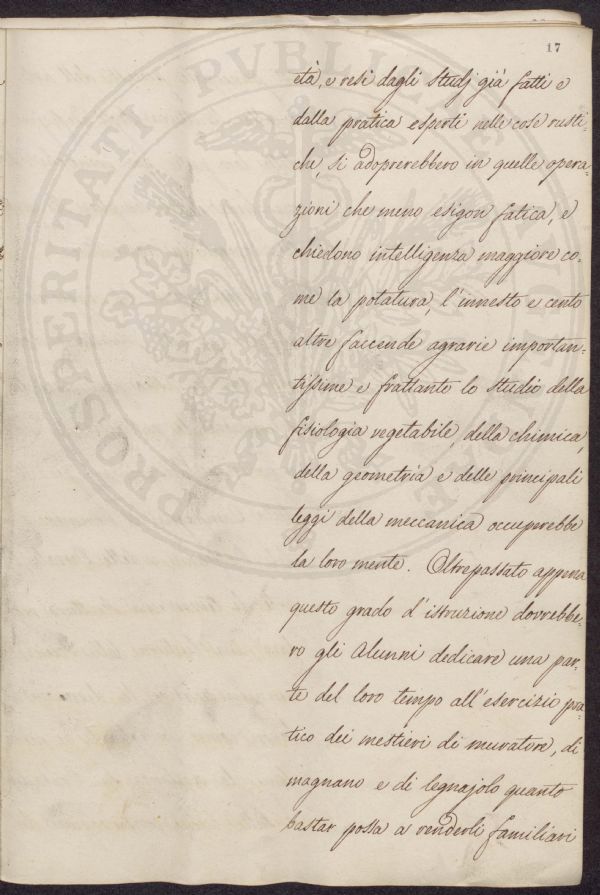 17
età, e resi dagli studj già fatti e
dalla pratica esperti nelle cose rusti-
che, si adoprerebbero in quelle opera-
zioni che meno esigon fatica, e
chiedono intelligenza maggiore co-
me la potatura, l'innesto e cento
altre faccende agrarie importan-
tissime e frattanto lo studio della
fisiologia vegetabile, della chimica,
della geometria e delle principali
leggi della meccanica occuperebbe
la loro mente. Oltrepassato appena
questo grado d'istruzione dovrebbe-
ro gli Alunni dedicare una par-
te del loro tempo all'esercizio pra
tico dei mestieri di muratore, di
magnano e di legnajolo quanto
bastar possa a renderli familiari
PROSPERITATI PVBLICAE